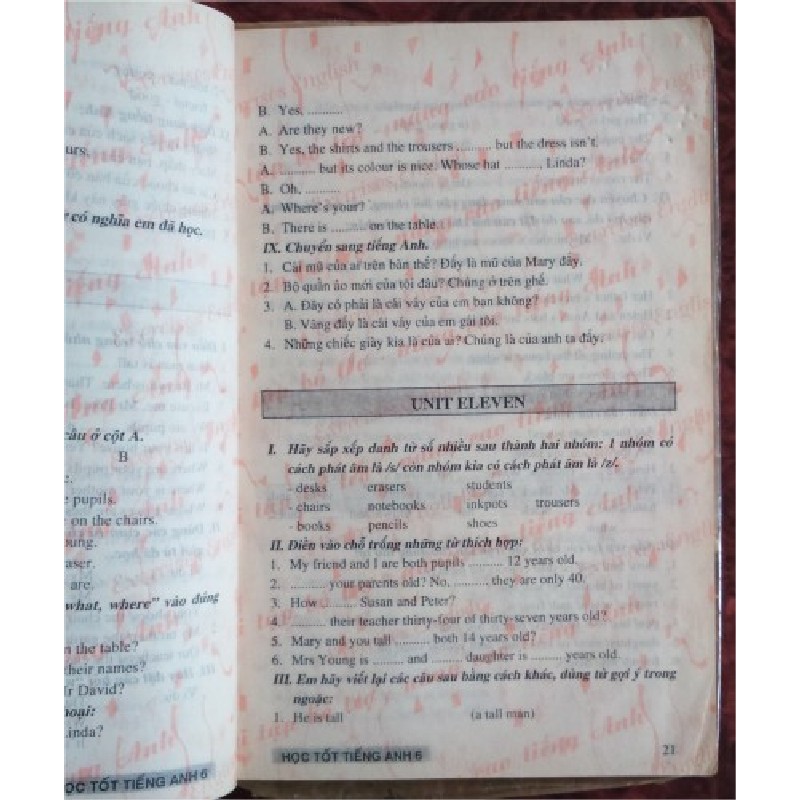 urs.
có nghĩa em đã học.
câu ở cột A.
B
pupils.
on the chairs.
ung.
aser.
are.
what, where" vào đúng
the table?
their names?
r David?
oại:
Linda?
HỌC TỐT TIẾNG ANH 6
B. Yes, ..........
A. Are they new?
B. Yes, the shirts and the trousers .......... but the dress isn't.
A. .......... but its colour is nice. Whose hat .........., Linda?
B. Oh, ..........
A. Where's your?
B. There is .......... on the table.
IX. Chuyển sang tiếng Anh.
1. Cái mũ của ai trên bàn thế? Đấy là mũ của Mary đấy.
2. Bộ quần áo mới của tôi đâu? Chúng ở trên ghế.
3. A. Đây có phải là cái váy của em bạn không?
B. Vâng đấy là cái váy của em gái tôi.
4. Những chiếc giày kia là của ai? Chúng là của anh ta đấy.
UNIT ELEVEN
I. Hãy sắp xếp danh từ số nhiều sau thành hai nhóm: 1 nhóm có
cách phát âm là /s/ còn nhóm kia có cách phát âm là /z/.
- desks erasers students
- chairs notebooks inkpots trousers
- books pencils shoes
II. Điền vào chỗ trống những từ thích hợp:
1. My friend and I are both pupils .......... 12 years old.
2. .......... your parents old? No, .......... they are only 40.
3. How .......... Susan and Peter?
4. .......... their teacher thirty-four of thirty-seven years old?
5. Mary and you tall .......... both 14 years old?
6. Mrs Young is .......... and .......... daughter is .......... years old.
III. Em hãy viết lại các câu sau bằng cách khác, dùng từ gợi ý trong
ngoặc:
1. He is tall (a tall man)
HỌC TỐT TIẾNG ANH 6
21